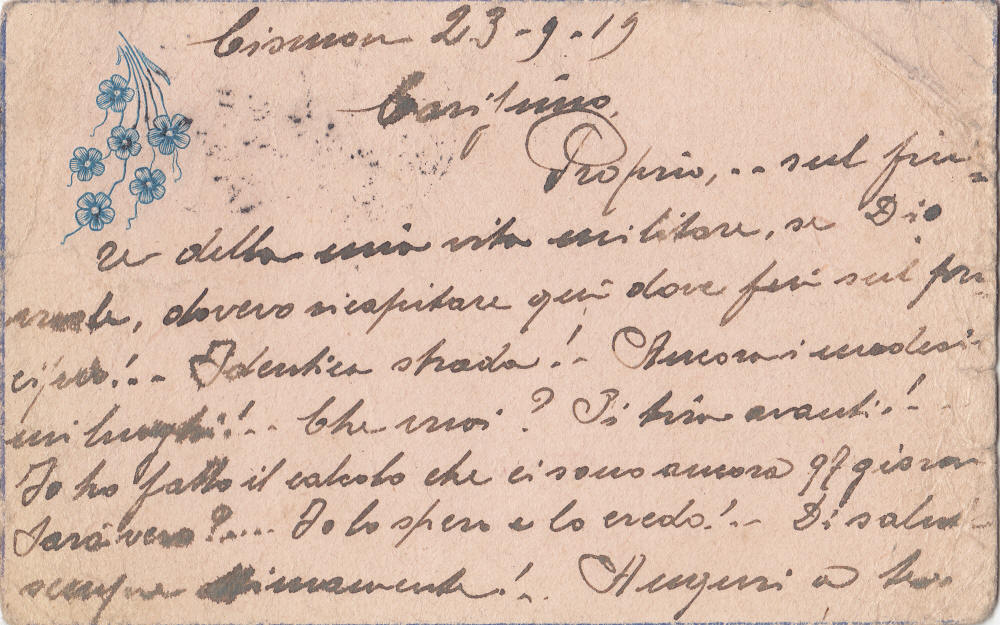 Cismon 23-9-19
Carissimo,
Proprio,... sul fini=
re della mia vita militare, se Dio
vuole, dovevo ricapitare qui dove fui sul prin
cipio!... Identica strada!- Ancora i medesi-
mi luoghi!... Che vuoi? Si tira avanti!--
Io ho fatto il calcolo che ci sono ancora 97 giorni
Sarà vero?.... Io lo spero e lo credo!.. Di salute
sempre !.. Auguri a te